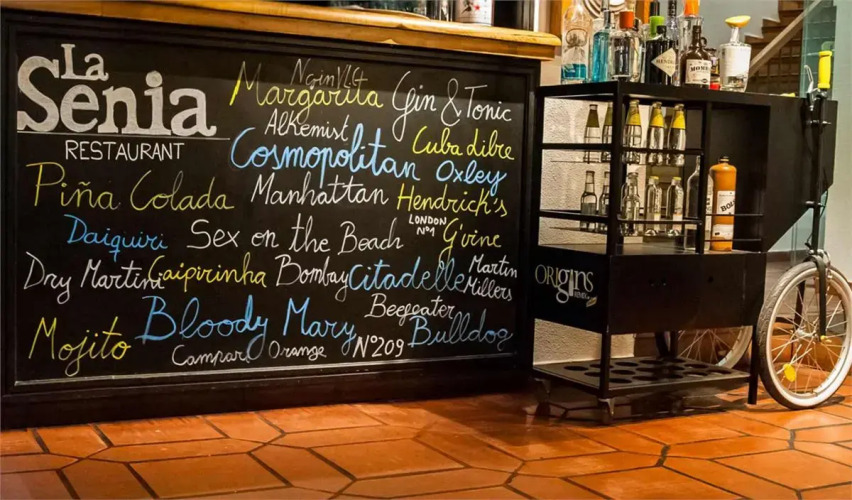 La
Senia
RESTAURANT
NginVLC
Margarita
Gin & Tonic
Alkemist
Cuba dibre
Cosmopolitan
Oxley
Piña Colada
Manhattan
Hendrick's
LONDON
Nº1
Daiquiri
Sex on the Beach
G'vine
Dry Martini
Caipirinha
Bombay
Citadelle
Martin
Millers
Beefeater
Bloody Mary
Bulldog
Mojito
Campari Orange
Nº209
ORIGINS
BOLS